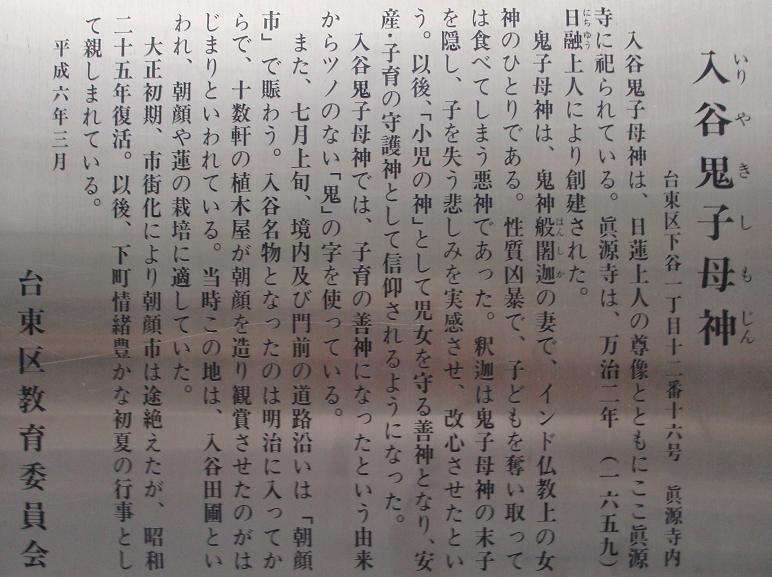 入谷鬼子母神
いりやきしもじん
台東区下谷一丁目十二番十六号　眞源寺内
入谷鬼子母神は、日蓮上人の尊像とともにここ眞源
寺に祀られている。眞源寺は、万治二年（一六五九）
日融上人により創建された。
にちゆう
鬼子母神は、鬼神般闍迦の妻で、インド仏教上の女
はんしか
神のひとりである。性質凶暴で、子どもを奪い取って
は食べてしまう悪神であった。釈迦は鬼子母神の末子
を隠し、子を失う悲しみを実感させ、改心させたとい
う。以後、「小児の神」として児女を守る善神となり、安
産・子育の守護神として信仰されるようになった。
入谷鬼子母神では、子育の善神になったという由来
からツノのない「鬼」の字を使っている。
また、七月上旬、境内及び門前の道路沿いは「朝顔
市」で賑わう。入谷名物となったのは明治に入ってか
らで、十数軒の植木屋が朝顔を造り観賞させたのがは
じまりといわれている。当時この地は、入谷田圃とい
われ、朝顔や蓮の栽培に適していた。
大正初期、市街化により朝顔市は途絶えたが、昭和
二十五年復活。以後、下町情緒豊かな初夏の行事とし
て親しまれている。
平成六年三月
台東区教育委員会